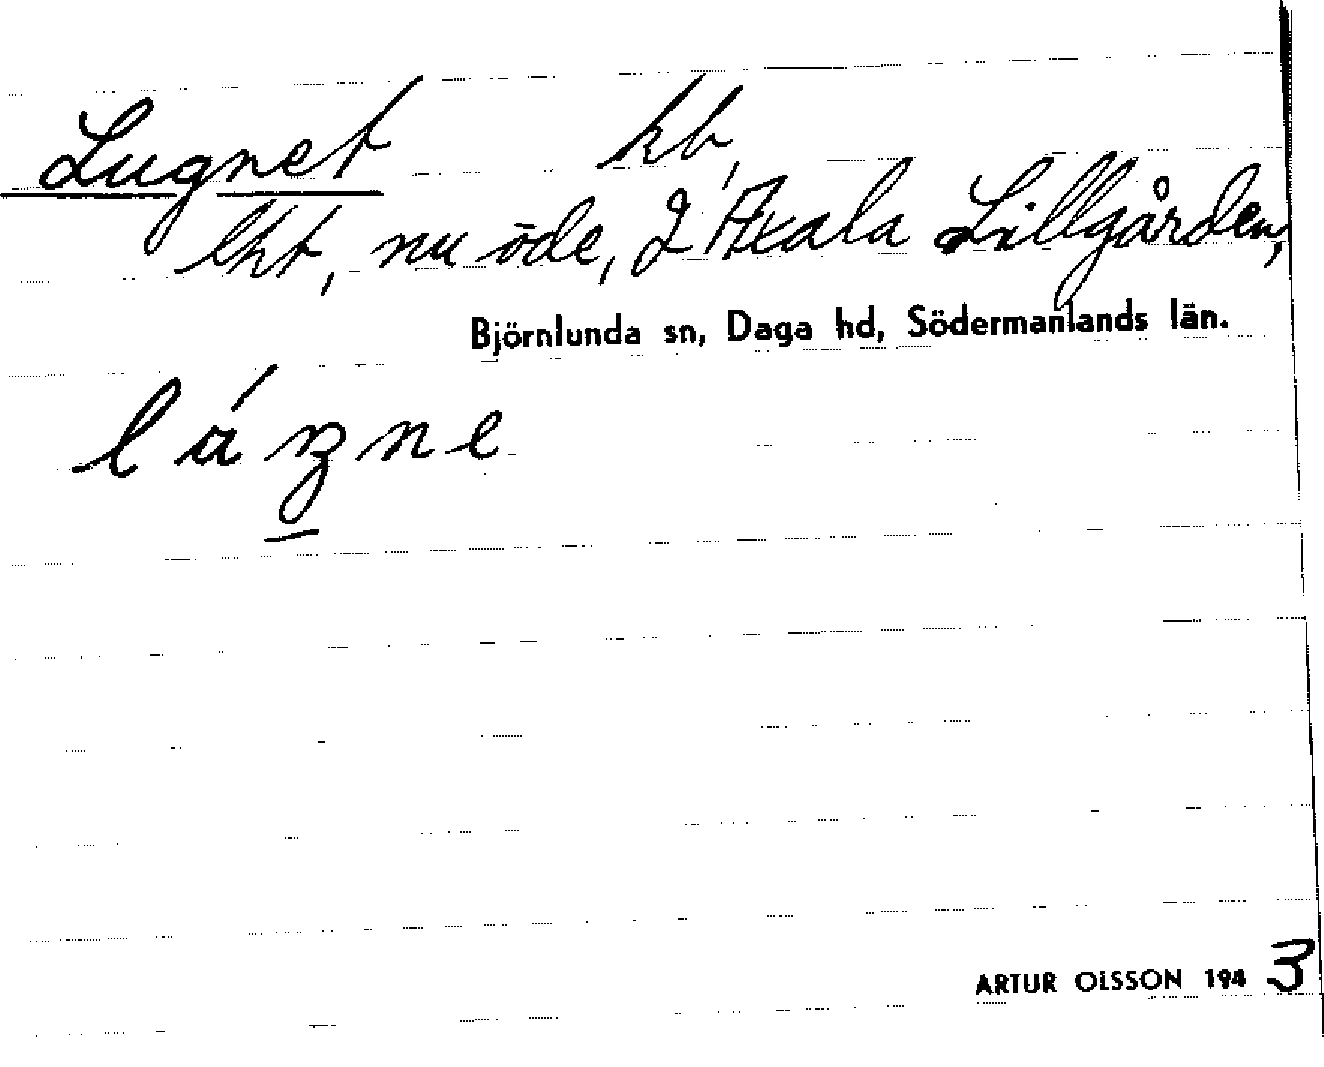 Lugnet hb,
lht, nu öde, 2 Axala Lillgården,
Björnlunda sn, Daga hd, Södermanlands län.
ARTUR OLSSON 1943